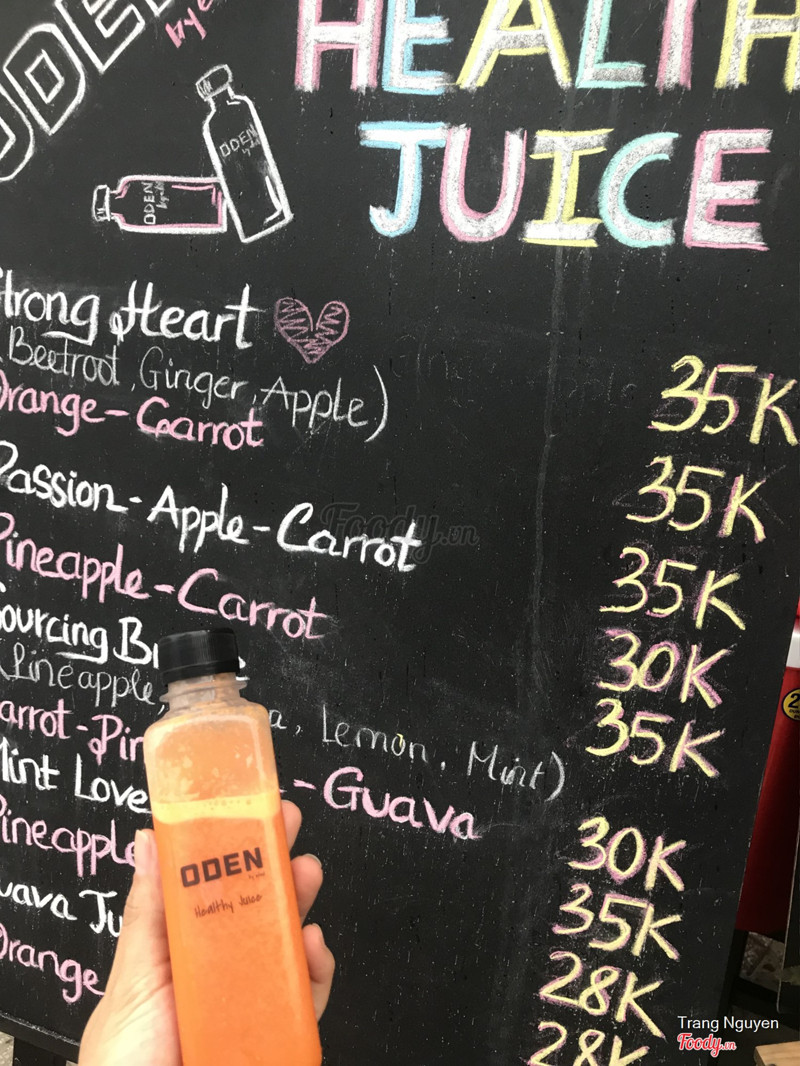 ODEN
HEALTH
JUICE
ODEN
ODEN
Strong Heart
(Beetroot, Ginger, Apple) 35K
Orange-Carrot 35K
Passion-Apple-Carrot 35K
Pineapple-Carrot 30K
Sourcing 35K
(Pineapple, Lemon, Mint)
Carrot-Pin -Guava 30K
Mint Love 35K
Pineapple 28K
Guava Ju 28K
Orange
ODEN
Healthy Juice
Foody.vn
Trang Nguyen
Foody.vn